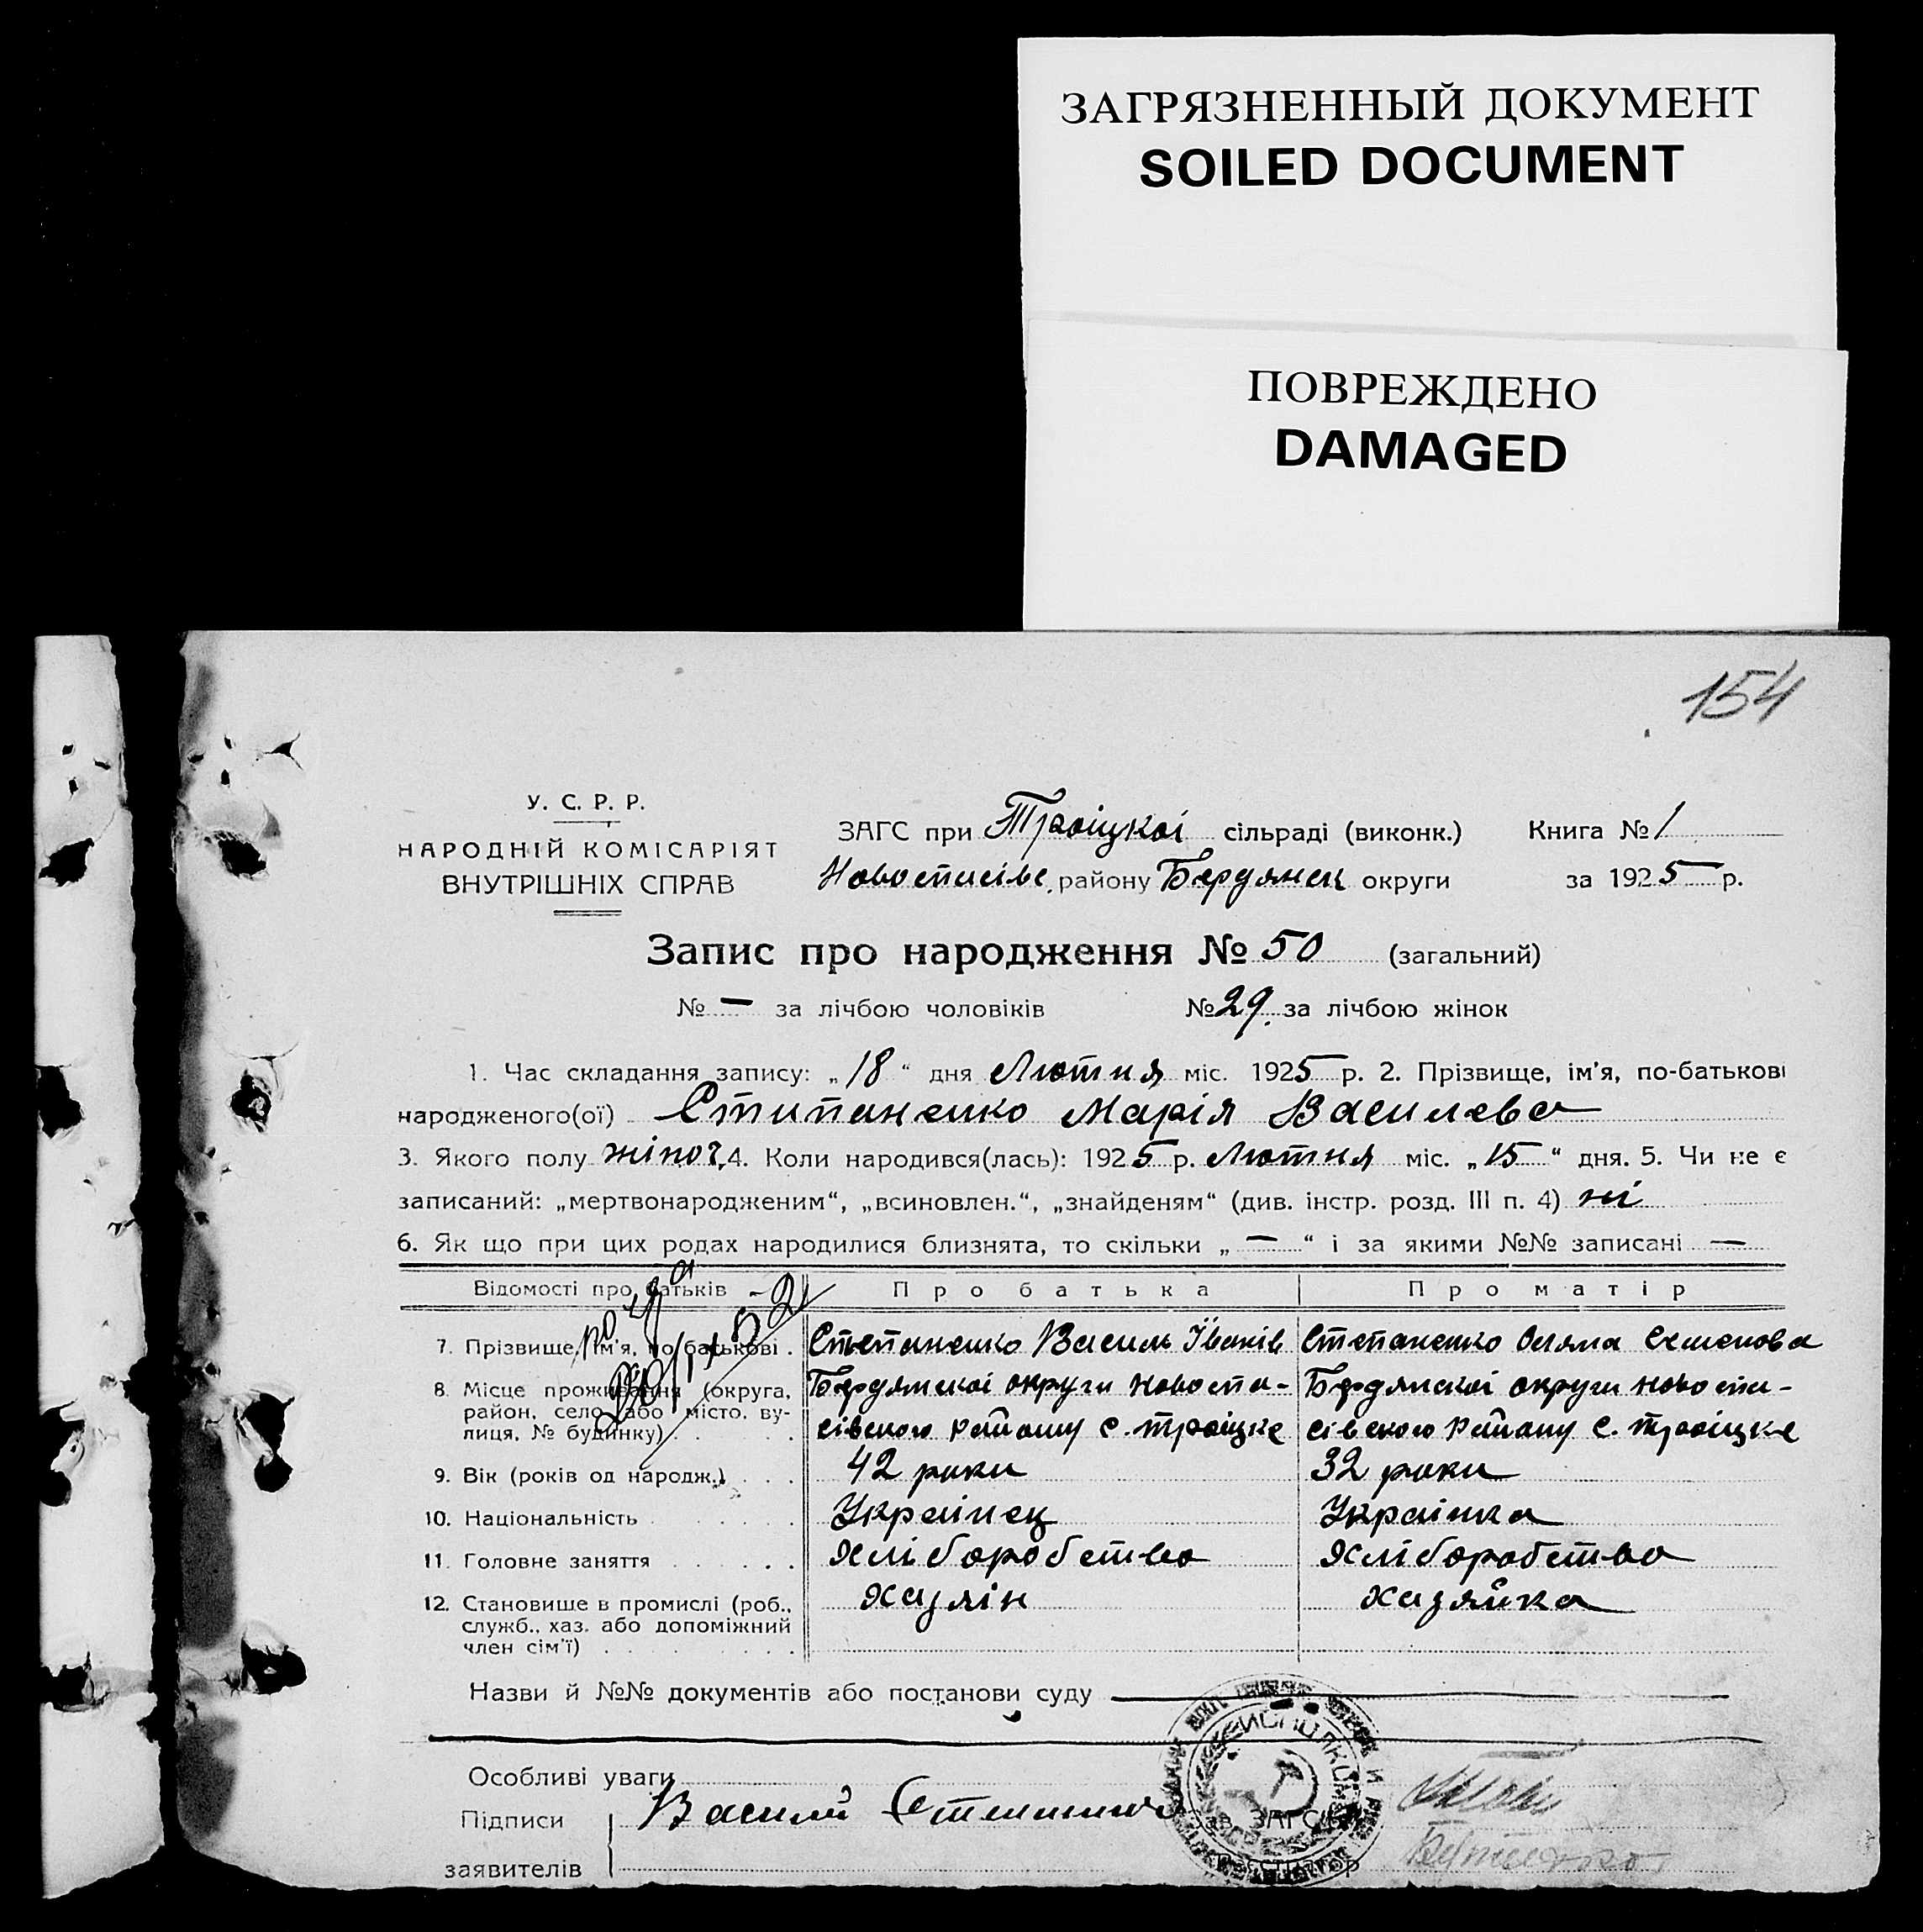 ЗАГРЯЗНЕННЫЙ ДОКУМЕНТ
SOILED DOCUMENT
ПОВРЕЖДЕНО
DAMAGED
154
У. С. Р. Р.
НАРОДНІЙ КОМІСАРІЯТ
ВНУТРІШНІХ СПРАВ
ЗАГС при Троіцкоі сільраді (виконк.) Книга № 1
району Бердянск округи за 1925 р.
Запис про народження № 50 (загальний)
№ — за лічбою чоловіків № 29 за лічбою жінок
1. Час складання запису: „18“ дня Лютня міс. 1925 р. 2. Прізвище, ім’я, по-батькові
народженого(ої) Стипаненко Марія Василева
3. Якого полу жіноч. 4. Коли народився(лась): 1925 р. Лютня міс. „15“ дня. 5. Чи не є
записаний: „мертвонародженим“, „всиновлен.“, „знайденям“ (див. інстр. розд. III п. 4) ні
6. Як що при цих родах народилися близнята, то скільки „ — “ і за якими №№ записані —
Відомості про батьків Про батька Про матір
7. Прізвище, ім’я, по батькові . Степаненко Василь Іванів Степаненко Семенова
8. Місце проживання (округа, Бердянскоі округи Новоспа- Бердянскоі округи Новоспа-
район, село або місто, ву- сівского району с. Троіцке сівского району с. Троіцке
лиця, № будинку)
9. Вік (років од народж.) 42 роки 32 роки
10. Національність Украінец Украінка
11. Головне заняття Хліборобство Хліборобство
12. Становище в промислі (роб., Хазяін Хазяйка
служб., хаз. або допоміжний
член сім’ї)
Назви й №№ документів або постанови суду
Особливі уваги
Підписи Василий
Зав. ЗАГС’ом
заявителів